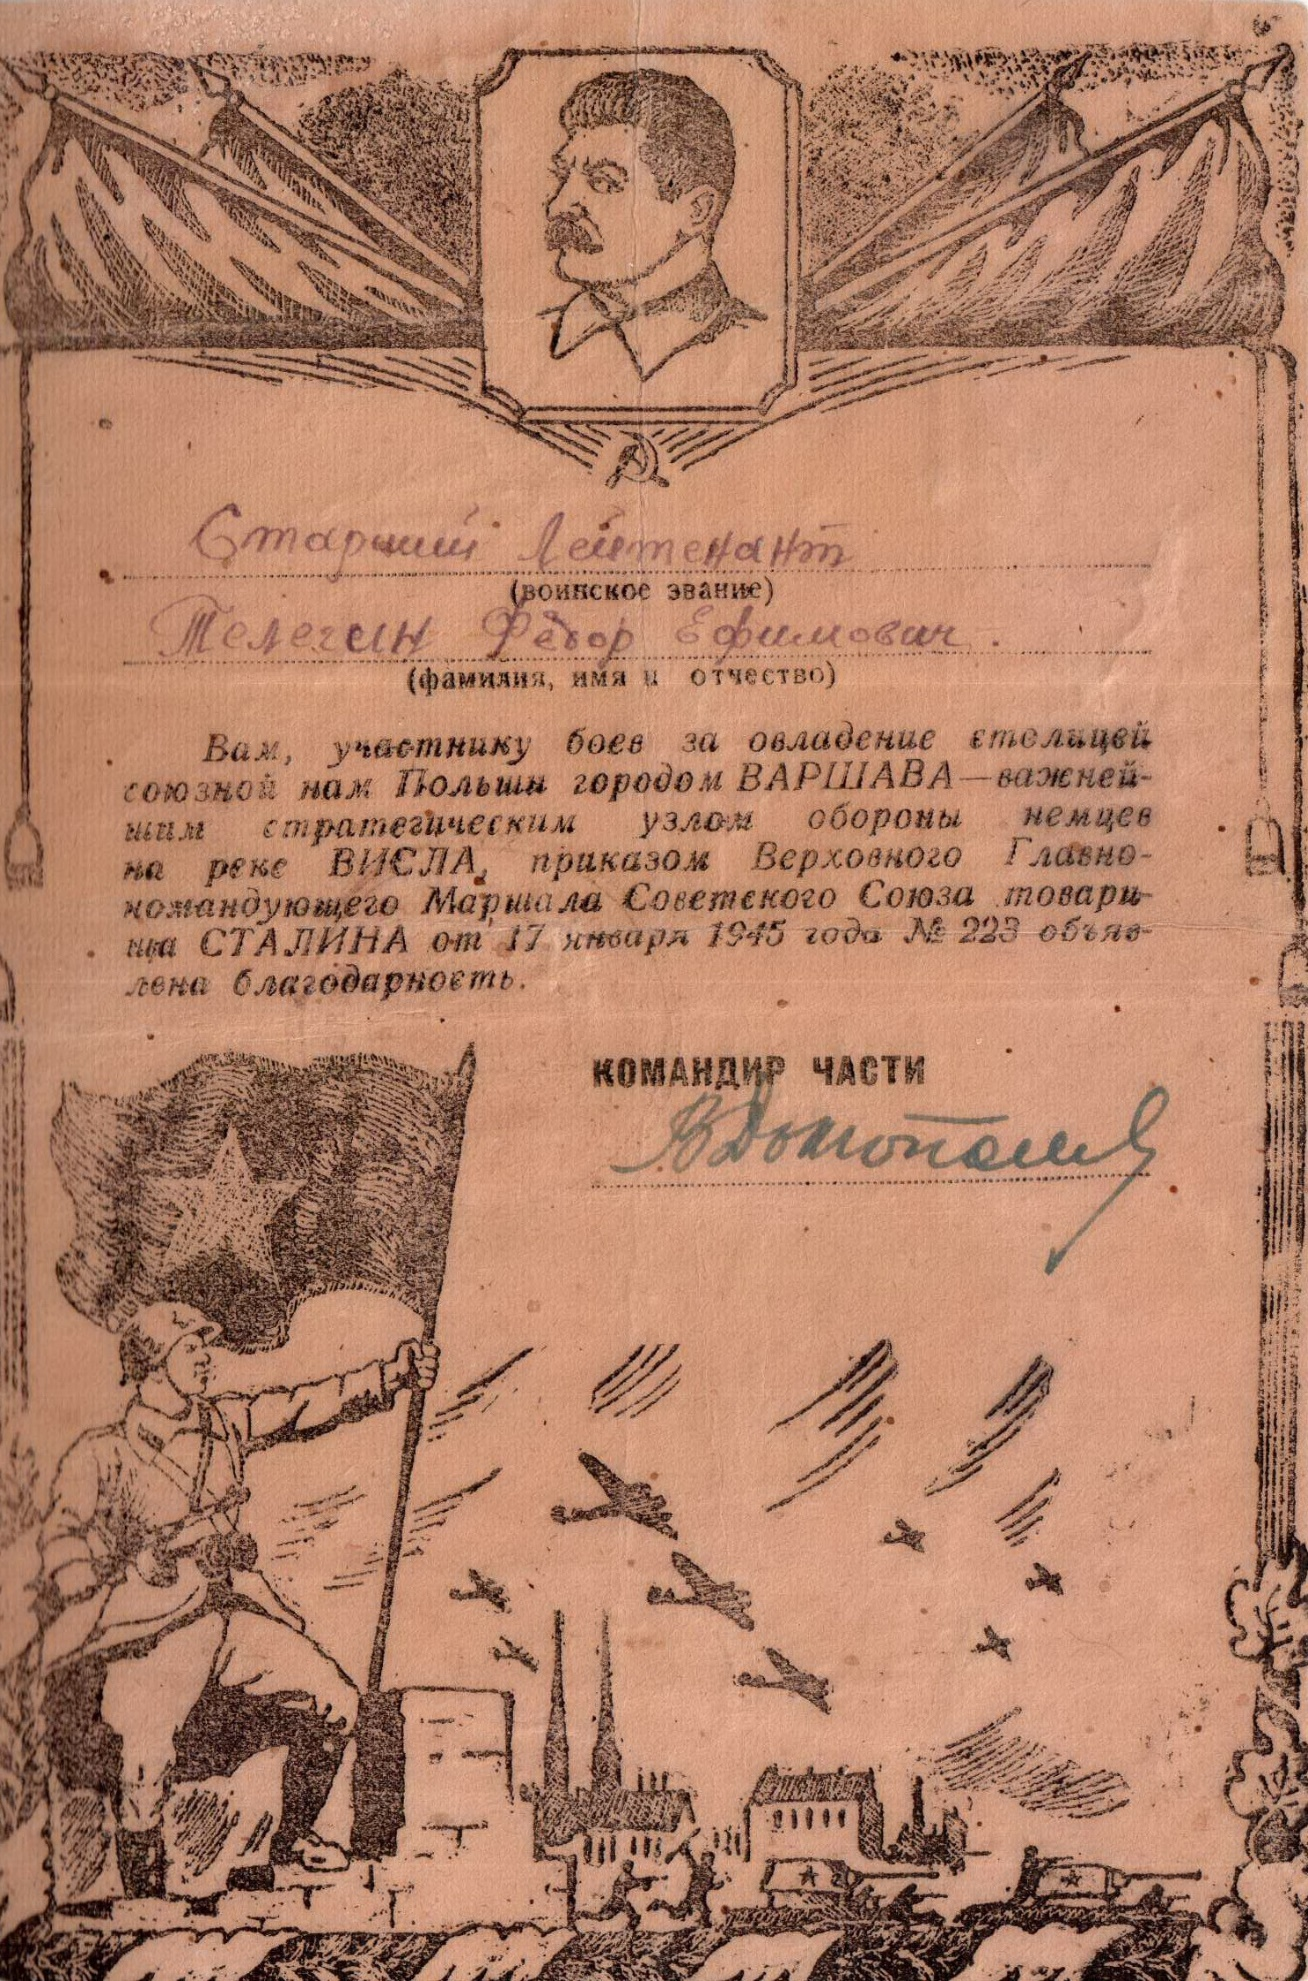 Старший Лейтенант
(воинское звание)
Телегин Фёдор Ефимович.
(фамилия, имя и отчество)
Вам, участнику боев за овладение столицей
союзной нам Польши городом ВАРШАВА—важней-
шим стратегическим узлом обороны немцев
на реке ВИСЛА, приказом Верховного Главно-
командующего Маршала Советского Союза товари-
ща СТАЛИНА от 17 января 1945 года № 223 объяв-
лена благодарность.
КОМАНДИР ЧАСТИ